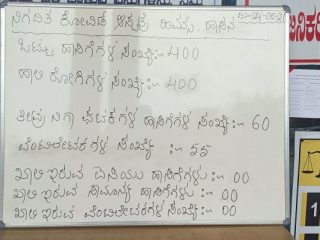 ನಿಗದಿತ ಕೋವಿಡ್ ಆಸ್ಪತ್ರೆ ಹಿಮ್ಸ್, ಹಾಸನ
ಒಟ್ಟು ಹಾಸಿಗೆಗಳ ಸಂಖ್ಯೆ:- 400
ಹಾಲಿ ರೋಗಿಗಳ ಸಂಖ್ಯೆ:- 400
ತೀವ್ರ ನಿಗಾ ಘಟಕಗಳ ಹಾಸಿಗೆಗಳ ಸಂಖ್ಯೆ:- 60
ವೆಂಟಿಲೇಟರಗಳ ಸಂಖ್ಯೆ :- 55
ಖಾಲಿ ಇರುವ ಐಸಿಯು ಹಾಸಿಗೆಗಳು:- 00
ಖಾಲಿ ಇರುವ ಸಾಮಾನ್ಯ ಹಾಸಿಗೆಗಳು:- 00
ಖಾಲಿ ಇರುವ ವೆಂಟಿಲೇಟರಗಳ ಸಂಖ್ಯೆ:- 00